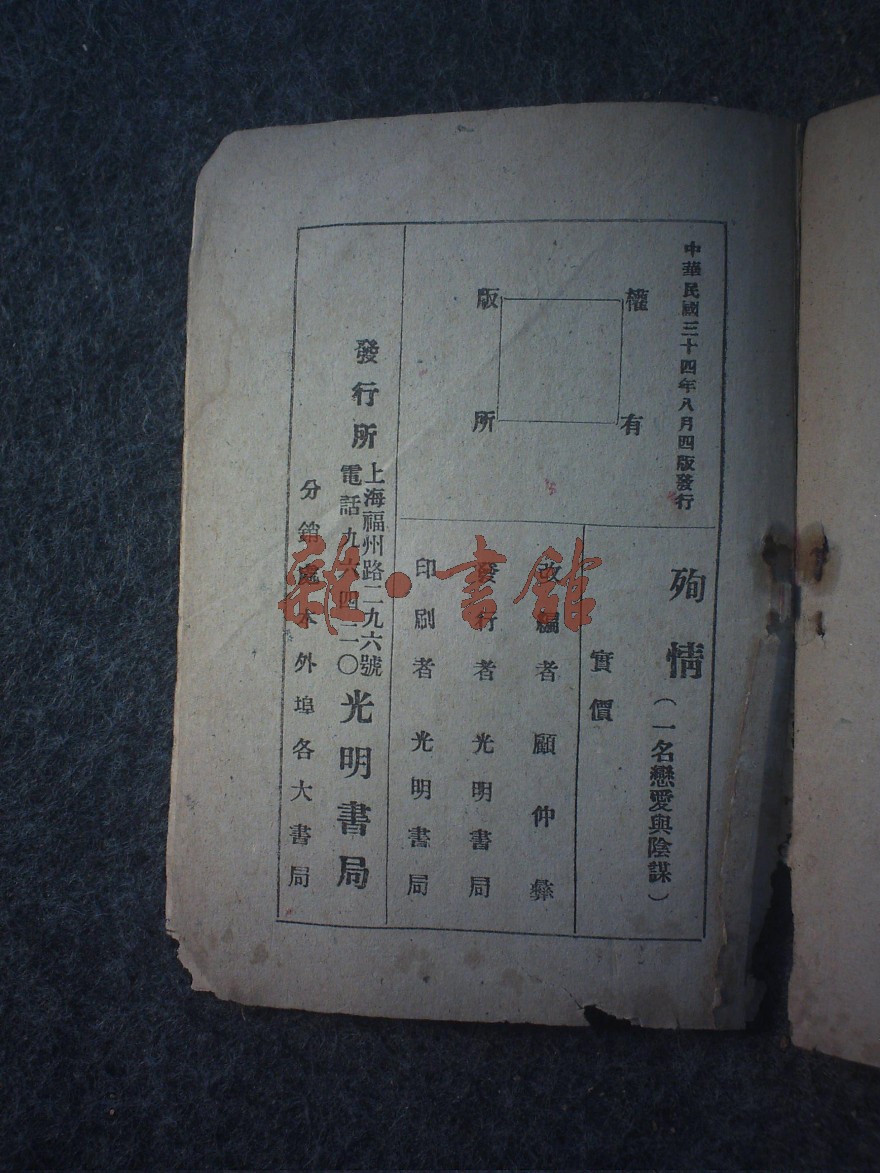 中華民國三十四年八月四版發行
權有
版所
殉情（一名戀愛與陰謀）
實價
改編者 顧仲彝
發行者 光明書局
印刷者 光明書局
發行所 上海福州路二九六號
電話九六四二〇 光明書局
分銷處 本外埠各大書局
雜·書館